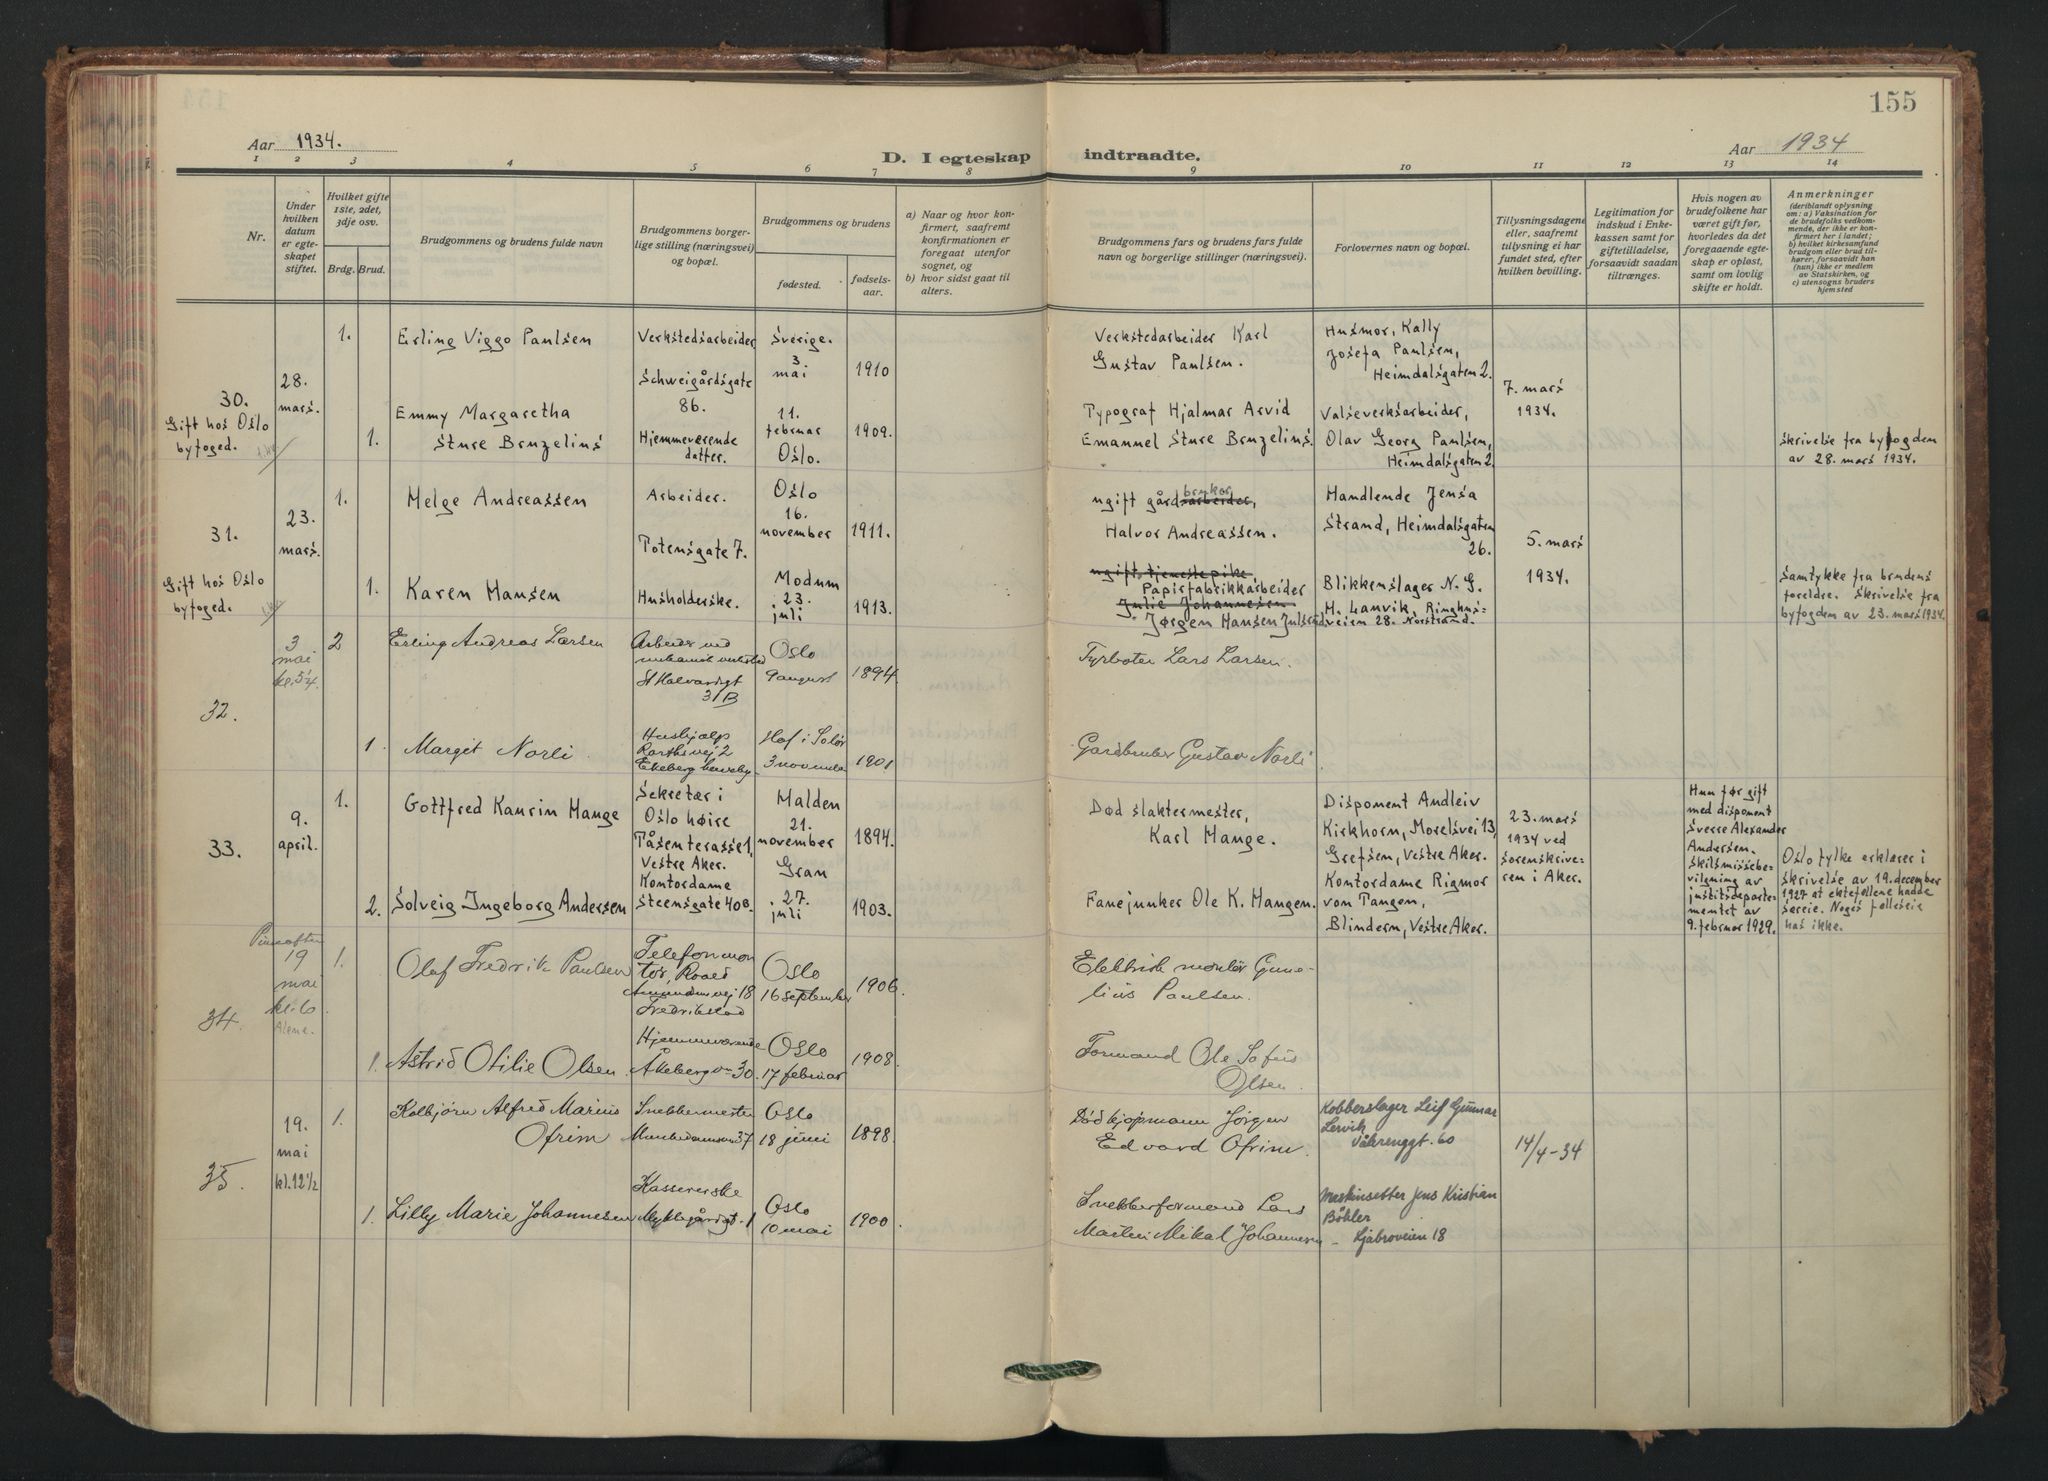 155
Aar 1934.
D. I egteskap indtraadte.
Aar 1934
1 2 3 4 5 6 7 8 9 10 11 12 13 14
Nr.
Under hvilken datum er egteskapet stiftet.
Hvilket gifte 1ste, 2det, 3dje osv.
Brdg. Brud.
Brudgommens og brudens fulde navn
Brudgommens borgerlige stilling (næringsvei) og bopæl.
Brudgommens og brudens
fødested.
fødselsaar.
a) Naar og hvor konfirmert, saafremt konfirmationen er foregaat utenfor sognet, og
b) hvor sidst gaat til alters.
Brudgommens fars og brudens fars fulde navn og borgerlige stillinger (næringsvei).
Forlovernes navn og bopæl.
Tillysningsdagene eller, saafremt tillysning ei har fundet sted, efter hvilken bevilling.
Legitimation for indskud i Enkekassen samt for giftetilladelse, forsaavidt saadan tiltrænges.
Hvis nogen av brudefolkene har været gift før, hvorledes da det foregaaende egteskap er opløst, samt om lovlig skifte er holdt.
Anmerkninger
(deriblandt oplysning om: a) Vaksination for de brudefolks vedkommende, der ikke er konfirmert her i landet; b) hvilket kirkesamfund brudgom eller brud tilhører, forsaavidt han (hun) ikke er medlem av Statskirken, og c) utensogns bruders hjemsted
30.
Gift hos Oslo
byfoged.
28.
mars.
1.
Erling Viggo Paulsen
Verkstedsarbeider
Schweigårdsgate
86.
Sverige.
3
mai
1910
Verkstedarbeider Karl
Gustav Paulsen.
Husmor, Kally
Josefa Paulsen,
Heimdalsgaten 2.
7. mars
1934.
1.
Emmy Margaretha
Sture Bruzelius
Hjemmeværende
datter.
11.
februar
Oslo.
1909.
Typograf Hjalmar Arvid
Emanuel Sture Bruzelius.
Valseverksarbeider,
Olav Georg Paulsen,
Heimdalsgaten 2.
Skrivelse fra byfogden
av 28. mars 1934.
31.
Gift hos Oslo
byfoged.
23.
mars.
1.
Helge Andreassen
Arbeider.
Totensgate 7.
Oslo
16.
november
1911.
ugift gårdsarbeider,
bruker
Halvor Andreassen.
Handlende Jensa
Strand, Heimdalsgaten
26.
5. mars
1934.
1.
Karen Hansen
Husholderske.
Modum
23.
juli
1913.
ugift tjenestepike
Papirfabrikkarbeider
Julie Johannesen
Jørgen Hansen Julsrud
Blikkenslager N. G.
H. Lanvik, Ringhus-
veien 28. Norstrand.
Samtykke fra brudens
foreldre. Skrivelse fra
byfogden av 23. mars 1934.
32.
3
mai
kl. 5¼
2
Erling Andreas Larsen
Arbeider ved
mekanisk verksted
St Halvardsgt
31B
Oslo
9 august
1894.
Fyrbøter Lars Larsen.
1.
Margit Norli.
Hushjælp
vej 2
Ekeberg
Hof i Solør
3 november
1901
Gårdbruker Gustav Norli.
33.
9.
april.
1.
Gottfred Kaurin Hange
Sekretær i
Oslo høire
Tåsen terasse 1,
Vestre Aker.
Halden
21.
november
1894.
Død slaktermester,
Karl Hange.
Disponent Andleiv
Kirkhorn, Morelsvei 13,
Grefsen, Vestre Aker.
23. mars
1934 ved
sorenskrive-
ren i Aker.
Hun før gift
med disponent
Sverre Alexander
Andersen.
Skilsmissebe-
vilgning av
justitsdeparte-
mentet av
9. februar 1929.
Oslo fylke erklærer i
skrivelse av 19. december
1927 at ektefellene hadde
særeie. Noget felleseie
has ikke.
2.
Solveig Ingeborg Andersen
Kontordame
Steensgate 40B.
Gran
27.
juli
1903.
Fanejunker Ole K. Hangen.
Kontordame Rigmor
von Tangen,
Blindern, Vestre Aker.
34.
Pinseaften
19
mai
kl. 6
Alene.
1.
Olaf Fredrik Paulsen
Telefonmon
tør, Roald
Amundsens vej 18
Fredrikstad
Oslo
16 september
1906.
Elektrisk montør Gune-
lius Paulsen.
1.
Astrid Otilie Olsen
Hjemmeværende
Åkebergvn 30.
Oslo
17 februar
1908
Formand Ole Sofus
Olsen.
35.
19.
mai
kl. 12½
1.
Kolbjørn Alfred Marius
Ofrim
Snekkermester
Munkedamsvn 37
Oslo
18 juni
1898.
Død kjøpmann Jørgen
Edvard Ofrim.
Kobberslager Leif Gunnar
Lervik
Vålerenggt. 60
14/4-34
1.
Lilly Marie Johannesen
Kassererske
Myklegårdgt. 1
Oslo
10 mai
1900.
Snekkerformand Lars
Martin Mikal Johannesen
Maskinsetter Jens Kristian
Bøhler
- Ljabroveien 18